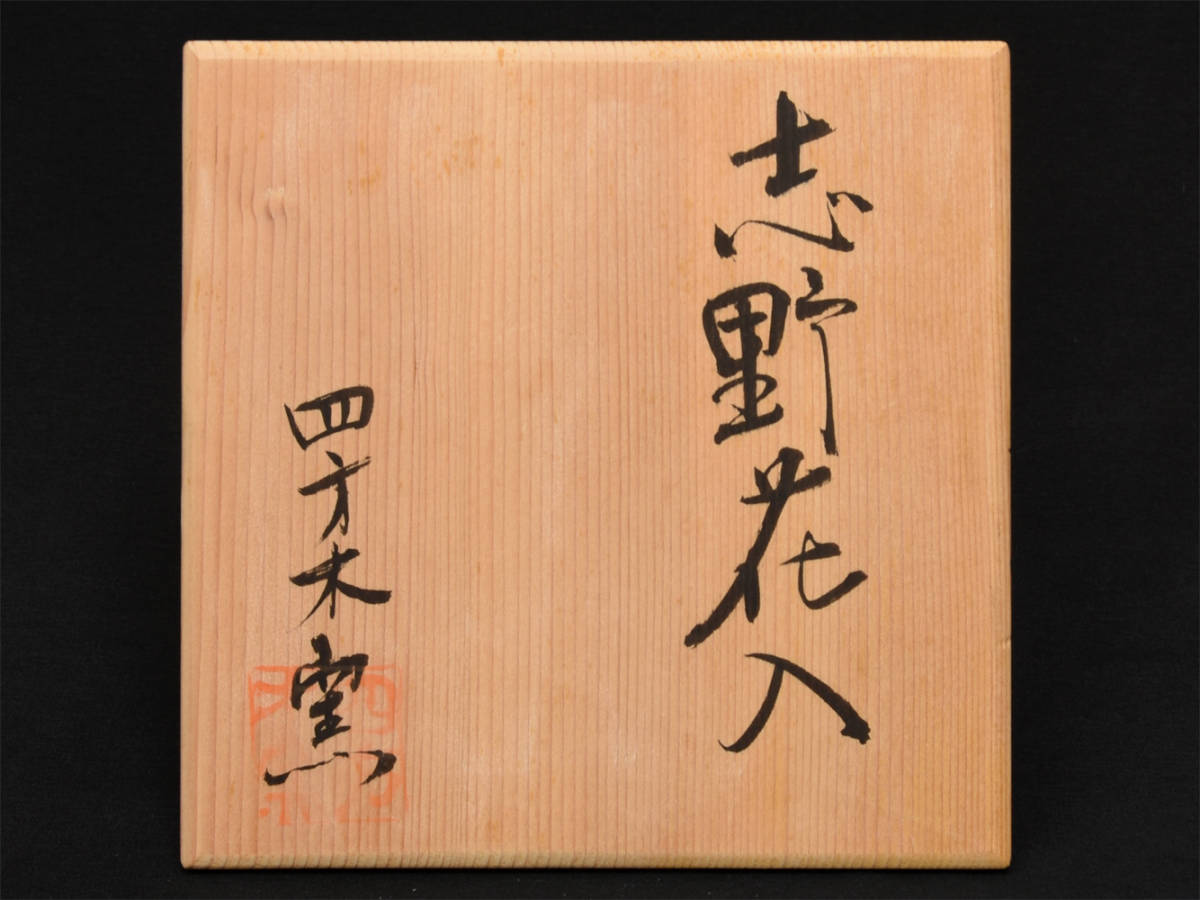 志野花入
四方木窯